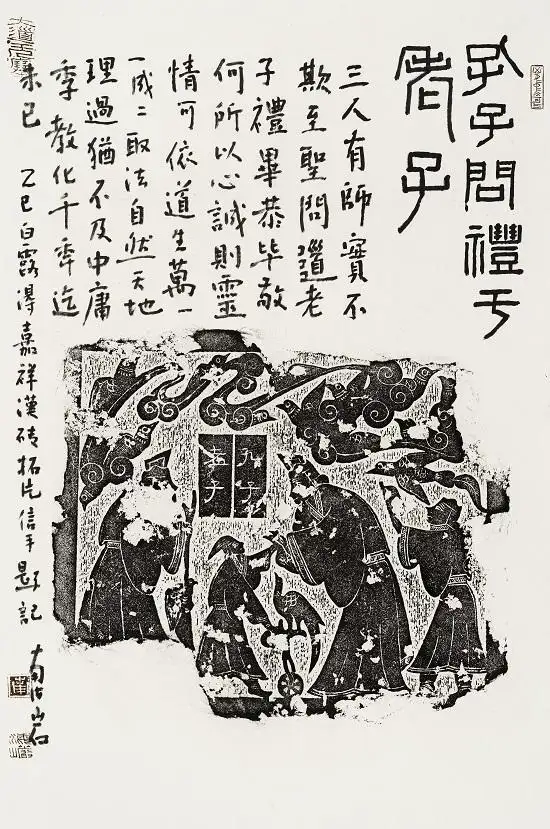 孔子問禮于
老子
三人有師實不
欺至聖問道老
子禮畢恭毕敬
何所以心誠則靈
情可依道生萬一
一成二取法自然天地
理過猶不及中庸
季教化千季迄
未已
乙巳白露得嘉祥漢磚拓片信手題記
孔子
老子